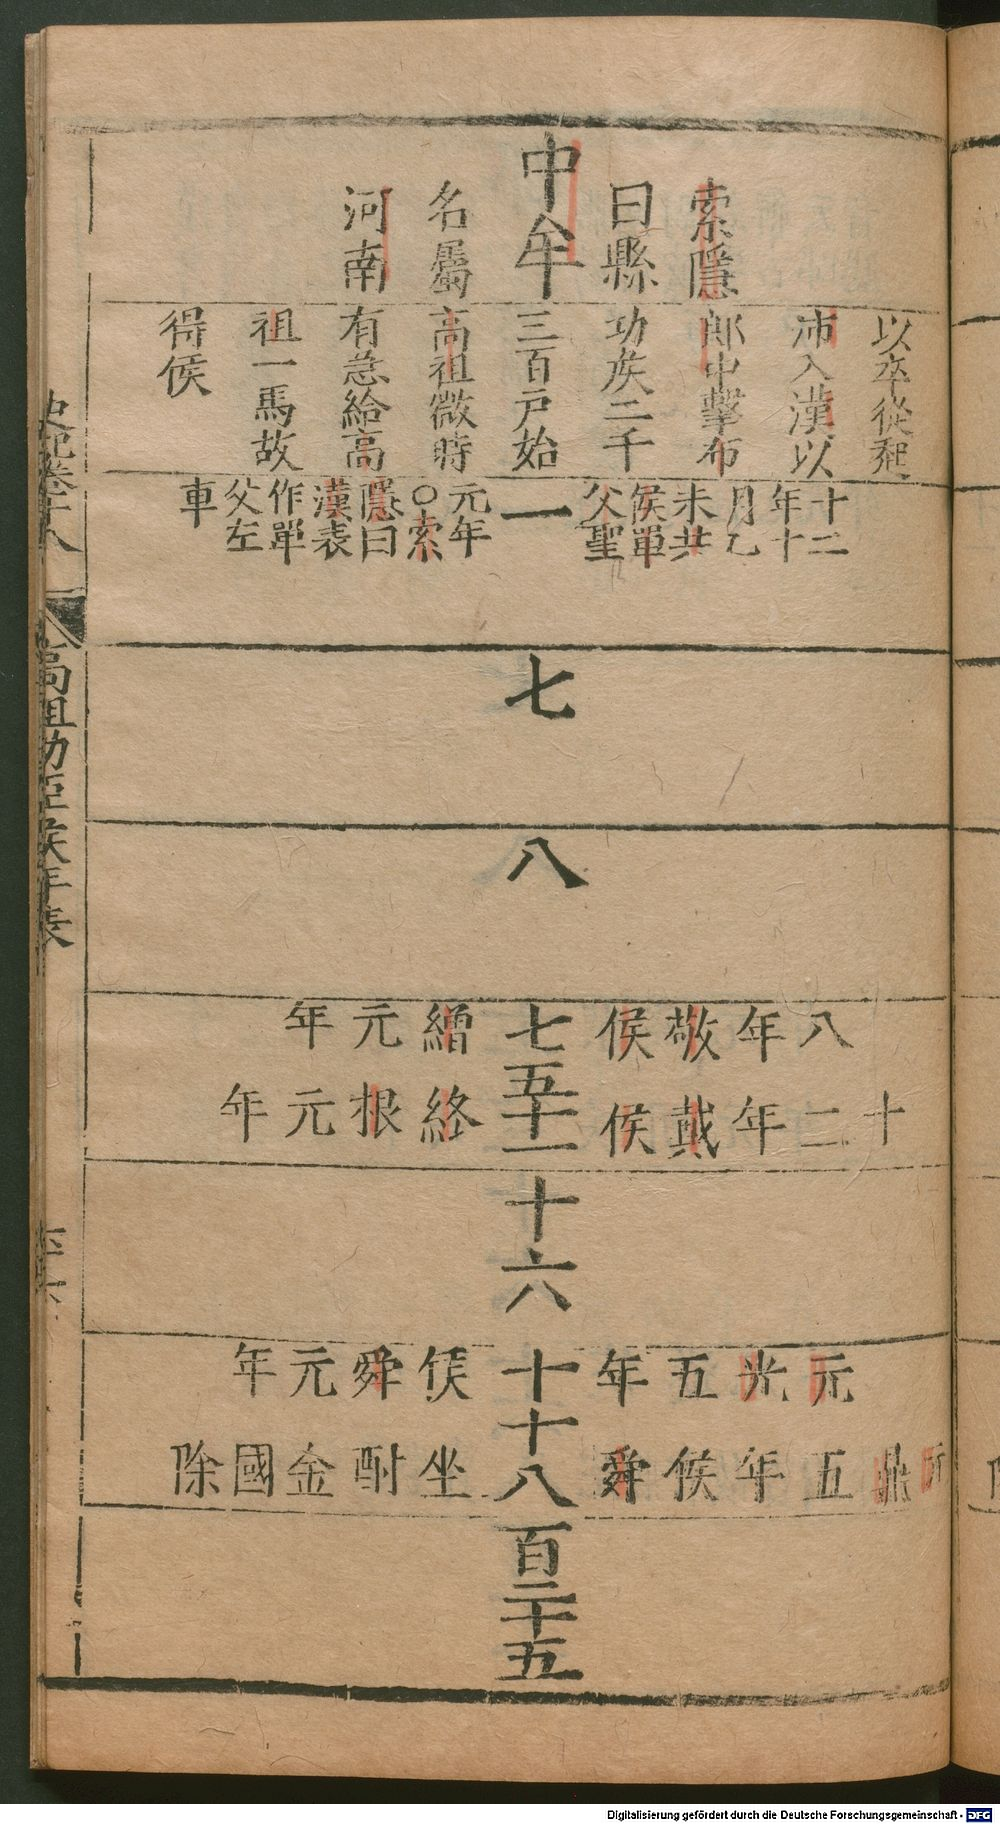 索隱
曰縣
中牟
名屬
河南
以卒從起
沛入漢以
郎中擊布
功矦二千
三百戸始
高祖微時
有急給高
祖一馬故
得侯
十二
年十
月乙
未共
侯單
父聖
一
元年
○索
隱曰
漢表
作單
父左
車
七
八
八年敬侯
十二年戴侯
七五十一
繒元年
終根元年
十六
元光五年
元鼎五年侯舜
十十八
侯舜元年
坐酎金國除
百二十五
史記卷十八
高祖功臣侯年表
Digitalisierung gefördert durch die Deutsche Forschungsgemeinschaft - DFG